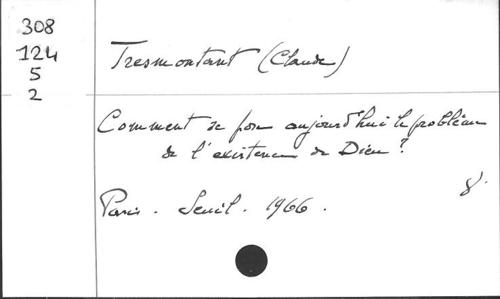 308
124
5
2
Tresmontant (Claude)
Comment se pose aujourd'hui le problème
de l'existence de Dieu?
8°
Paris. Seuil. 1966.